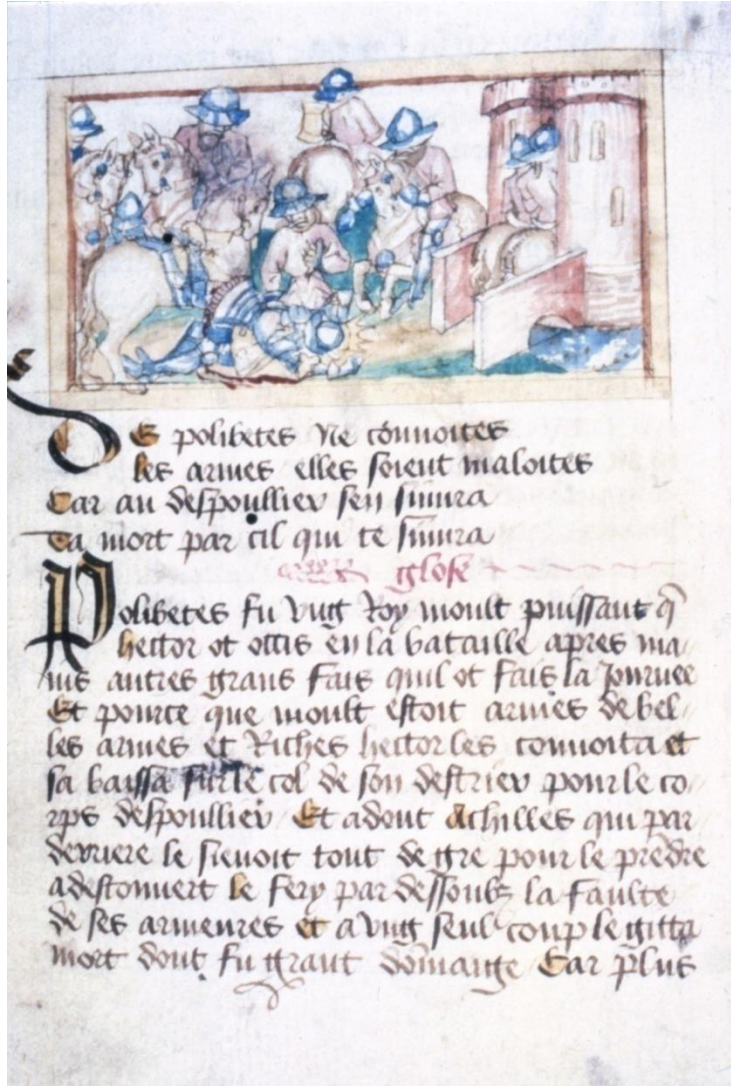 Des polibetes ne conuoites
les armes elles soient maloites
Car au despoullier sen siuura
Ta mort par cil qui te siuura
glose
Polibetes fu vng Roy moult puissant q̄
hector ot occis en la bataille apres ma
nis autres grans fais quil ot fais la Journee
Et pource que moult estoit armes de bel
les armes et Riches hector les conuoita et
sa baissa sur le col de son destrier pour le co
rps despoullier Et adont Achilles qui par
derriere le sieuoit tout de gre pour le prēdre
a destouuert le fery par dessoubz la faulte
de ses armeures et a vng seul coup le gitta
mort dont fu grant dōmaige Car plus